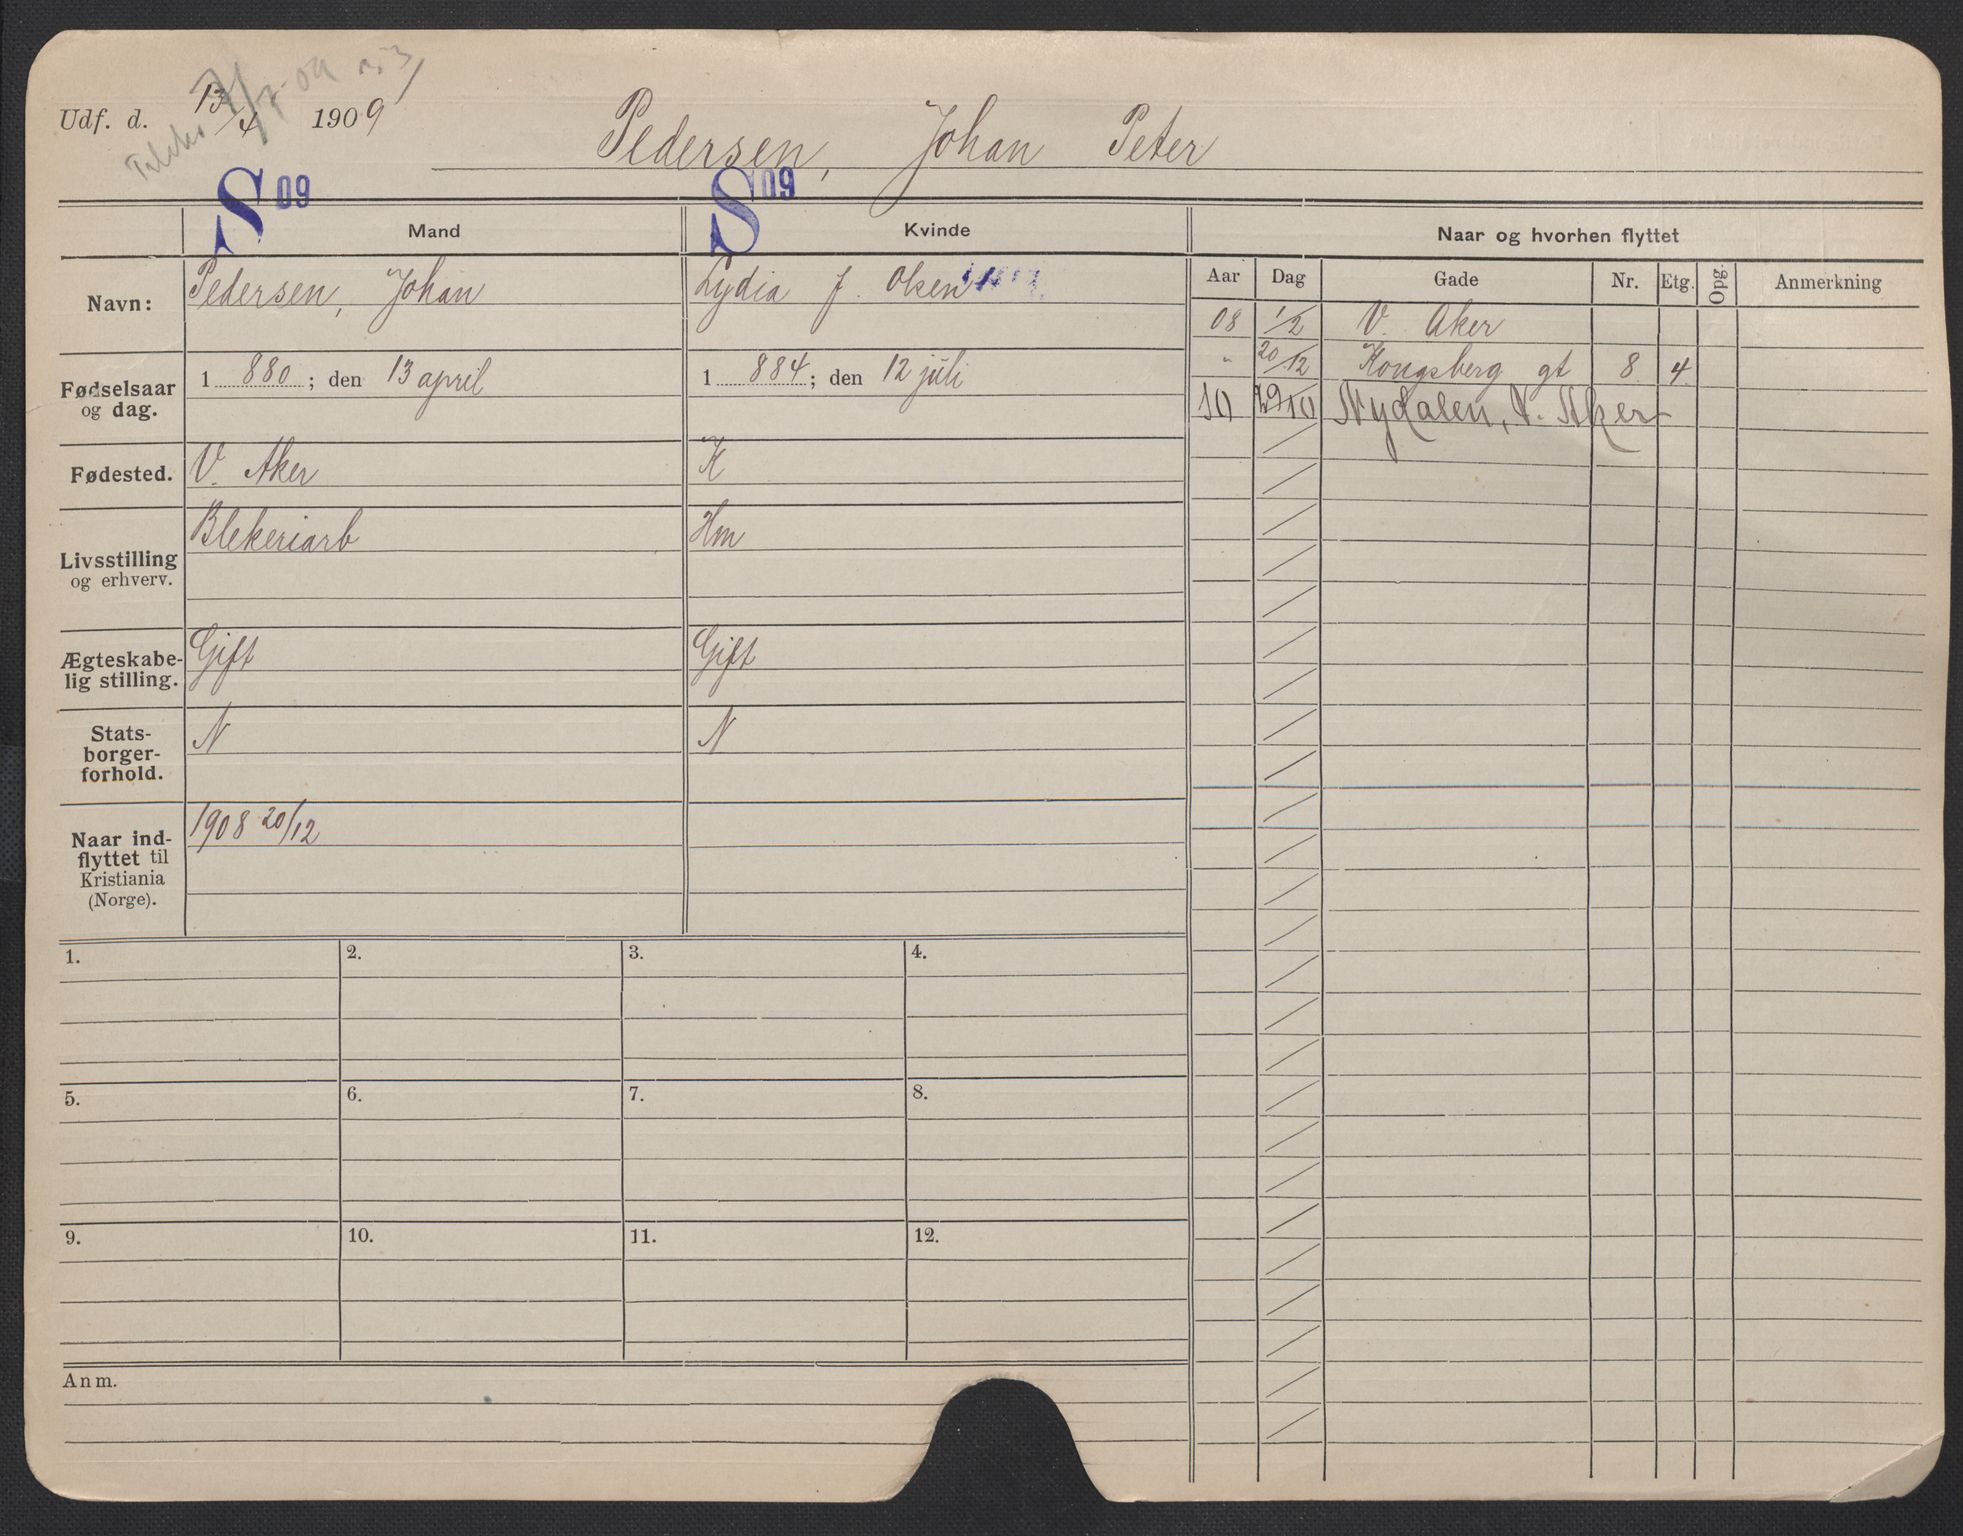 Udf. d. 13/4 1909
Pedersen, Johan Peter
S 09 S 09
Mand Kvinde Naar og hvorhen flyttet
Aar Dag Gade Nr. Etg. Opg. Anmerkning
Navn: Pedersen, Johan Lydia J. Olsen
08 1/2 V. Aker
" 20/12 Kongsberg gt 8 4
10 29/10 Nydalen, V. Aker
Fødselsaar og dag. 1880; den 13 april 1884; den 12 juli
Fødested. V. Aker K
Livsstilling og erhverv. Blekeriarb Hm
Ægteskabe-
lig stilling. Gift Gift
Stats-
borger-
forhold. N N
Naar ind-
flyttet til
Kristiania
(Norge). 1908 20/12
1. 2. 3. 4.
5. 6. 7. 8.
9. 10. 11. 12.
Anm.